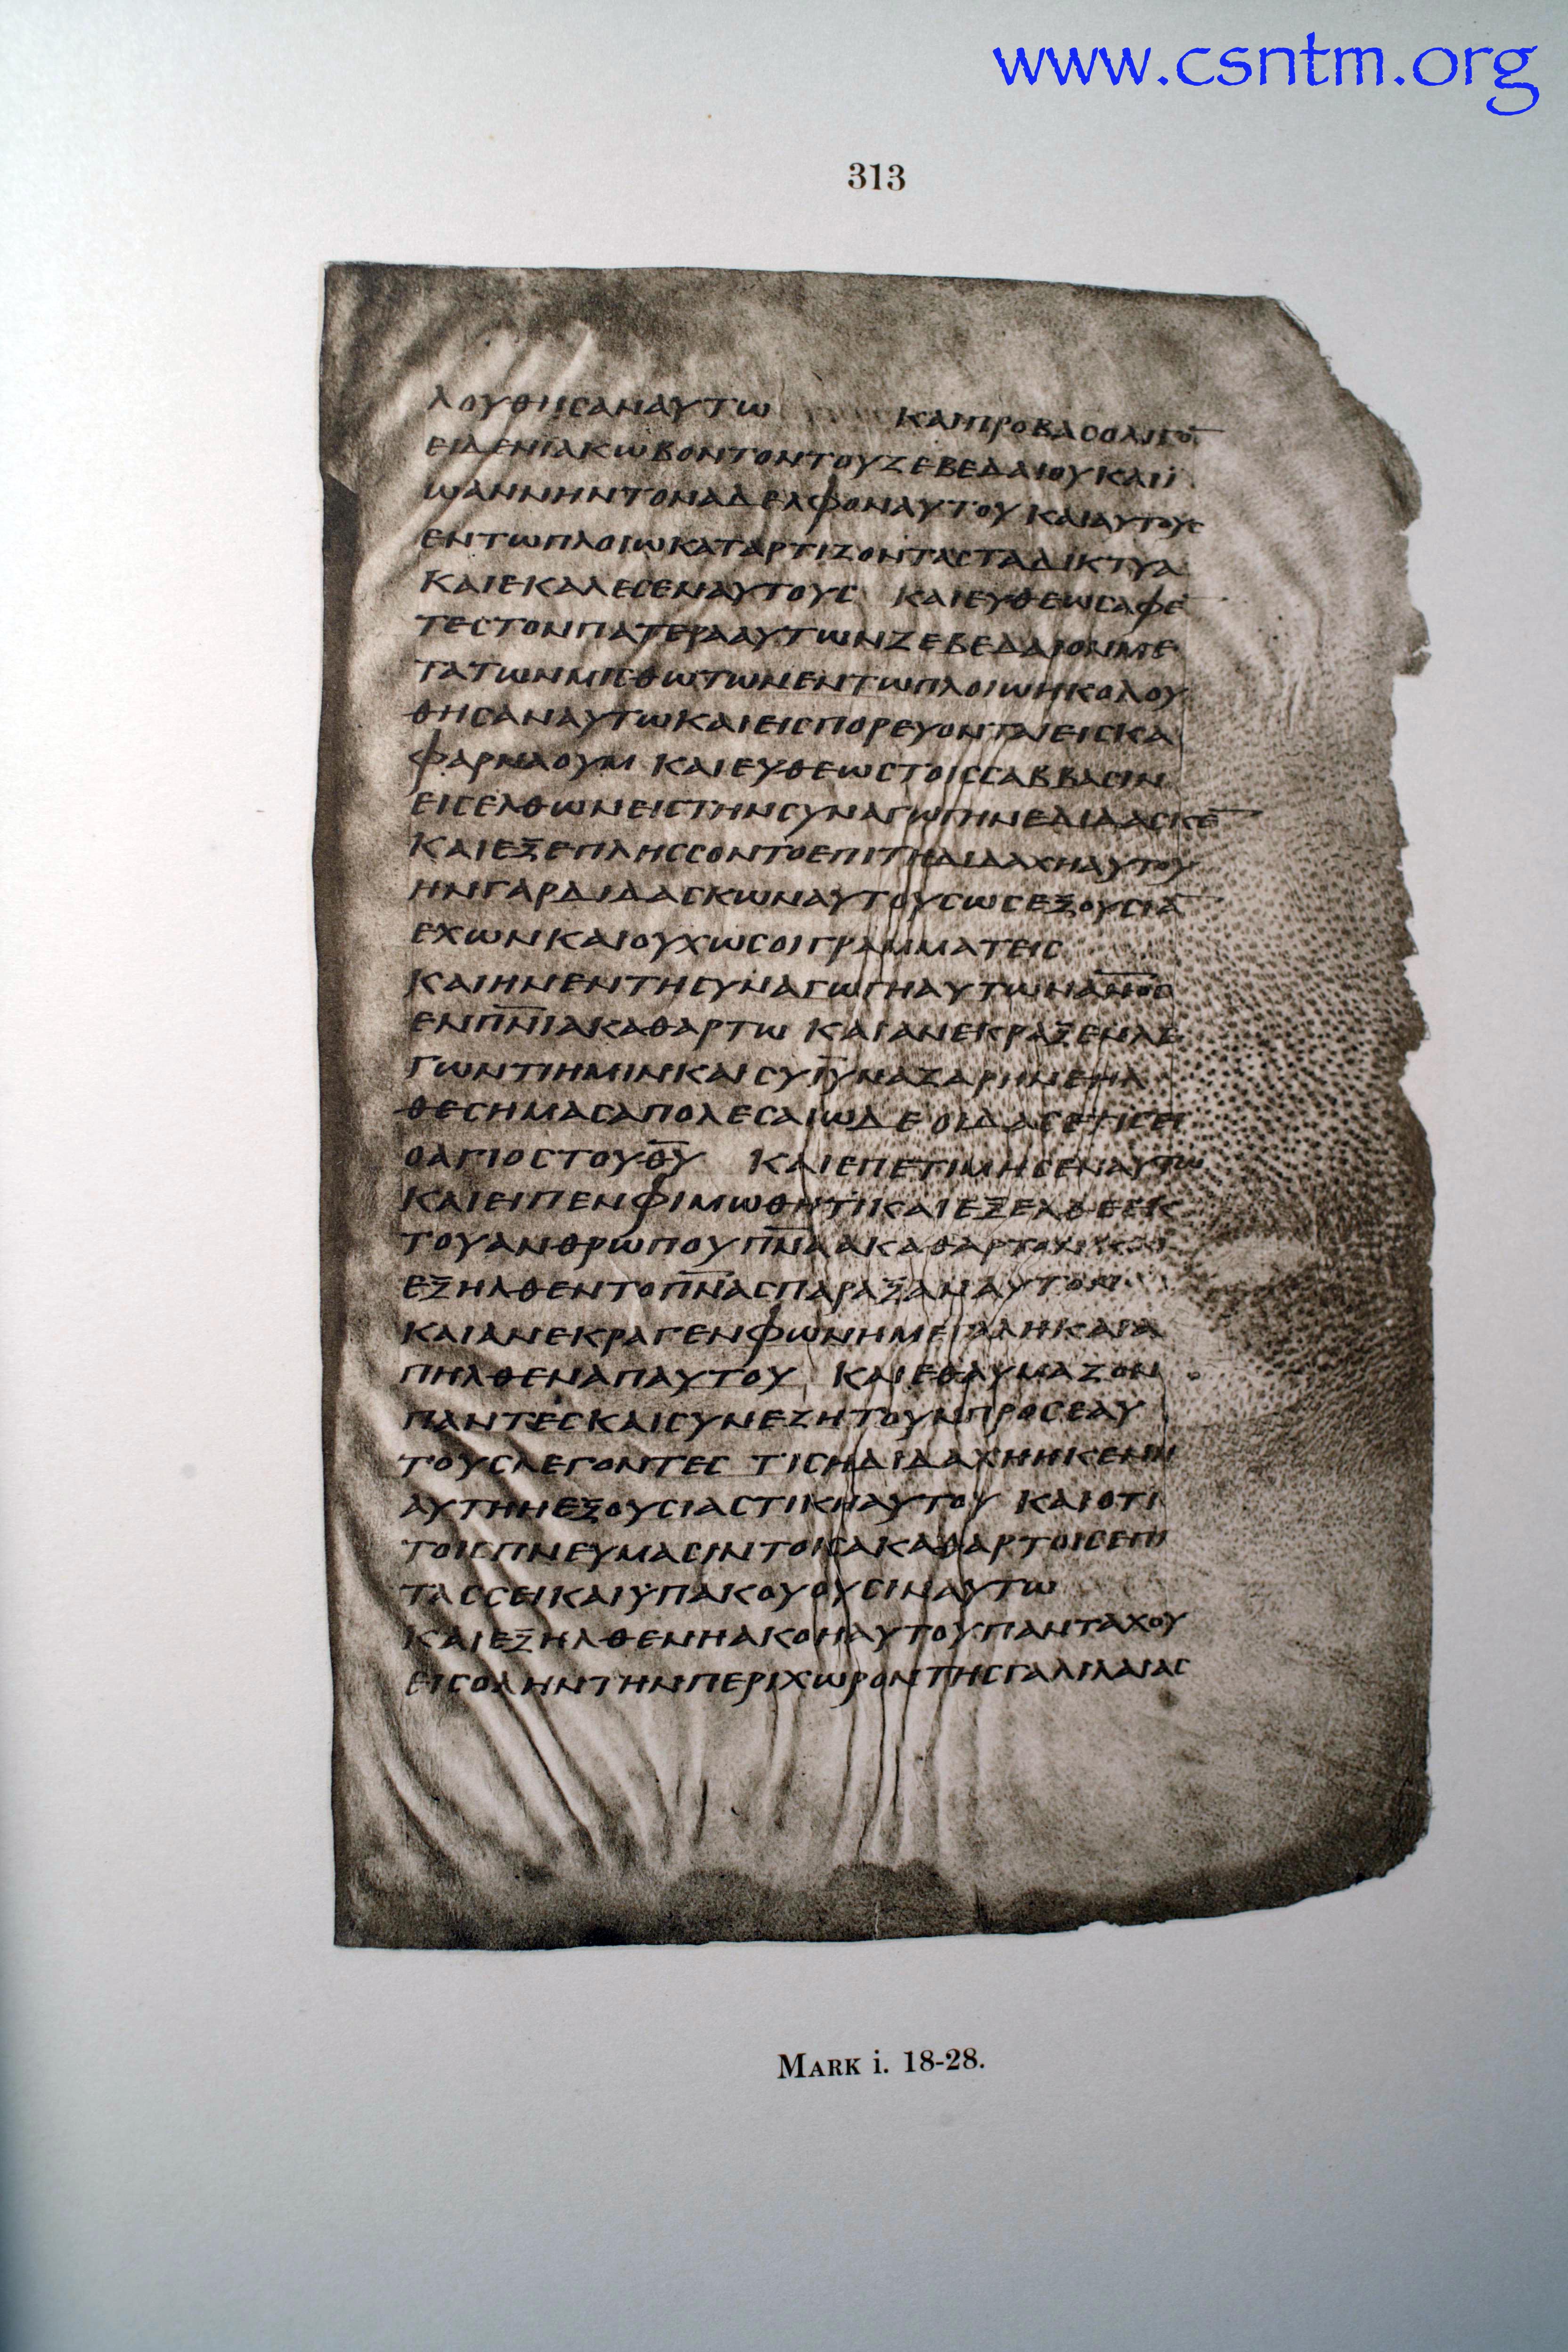 www.csntm.org
313
ΛΟΥΘΗCΑΝΑΥΤω ΚΑΙΠΡΟΒΑC
ΕΙΔΕΝΙΑΚωΒΟΝΤΟΝΤΟΥΖΕΒΕΔΑΙΟΥΚΑΙΙ
ωΑΝΝΗΝΤΟΝΑΔΕΛΦΟΝΑΥΤΟΥ ΚΑΙΑΥΤΟΥC
ΕΝΤωΠΛΟΙωΚΑΤΑΡΤΙΖΟΝΤΑCΤΑΔΙΚΤΥΑ
ΚΑΙΕΚΑΛΕCΕΝΑΥΤΟΥC ΚΑΙΕΥΘΕωCΑΦΕ̅
ΤΕCΤΟΝΠΑΤΕΡΑΑΥΤωΝΖΕΒΕΔΑΙΟΝΜΕ
ΤΑΤωΝΜΙCΘωΤωΝΕΝΤωΠΛΟΙωΗΚΟΛΟΥ
ΘΗCΑΝΑΥΤωΚΑΙΕΙCΠΟΡΕΥΟΝΤΑΙΕΙCΚΑ
ΦΑΡΝΑΟΥΜ ΚΑΙΕΥΘΕωCΤΟΙCCΑΒΒΑCΙΝ
ΕΙCΕΛΘωΝΕΙCΤΗΝCΥΝΑΓωΓΗΝΕΔΙΔΑCΚΕ̅
ΚΑΙΕΞΕΠΛΗCCΟΝΤΟΕΠΙΤΗΔΙΔΑΧΗΑΥΤΟΥ
ΗΝΓΑΡΔΙΔΑCΚωΝΑΥΤΟΥCωCΕΞΟΥCΙΑ̅
ΕΧωΝΚΑΙΟΥΧωCΟΙΓΡΑΜΜΑΤΕΙC
ΚΑΙΗΝΕΝΤΗCΥΝΑΓωΓΗΑΥΤωΝΑ̅Ν̅Ο̅C̅
ΕΝΠ̅Ν̅Ι̅ΑΚΑΘΑΡΤω ΚΑΙΑΝΕΚΡΑΞΕΝΛΕ
ΓωΝΤΙΗΜΙΝΚΑΙCΥΙ̅Υ̅ΝΑΖΑΡΗΝΕΗΛ
ΘΕCΗΜΑCΑΠΟΛΕCΑΙωΔΕΟΙΔΑCΕΤΙCΕΙ
ΟΑΓΙΟCΤΟΥΘ̅Υ̅ ΚΑΙΕΠΕΤΙΜΗCΕΝΑΥΤω
ΚΑΙΕΙΠΕΝΦΙΜωΘΗΤΙΚΑΙΕΞΕΛΘΕΕΚ
ΤΟΥΑΝΘΡωΠΟΥΠ̅Ν̅Α̅ΑΚΑΘΑΡΤΟΝ ΚΑΙ
ΕΞΗΛΘΕΝΤΟΠ̅Ν̅Α̅CΠΑΡΑΞΑΝΑΥΤΟΝ
ΚΑΙΑΝΕΚΡΑΓΕΝΦωΝΗΜΕΓΑΛΗΚΑΙΑ
ΠΗΛΘΕΝΑΠΑΥΤΟΥ ΚΑΙΕΘΑΥΜΑΖΟΝ
ΠΑΝΤΕCΚΑΙCΥΝΕΖΗΤΟΥΝΠΡΟCΕΑΥ
ΤΟΥCΛΕΓΟΝΤΕC ΤΙCΗΔΙΔΑΧΗΗΚΕΝΗ
ΑΥΤΗΗΕΞΟΥCΙΑCΤΙΚΗΑΥΤΟΥ ΚΑΙΟΤΙ
ΤΟΙCΠΝΕΥΜΑCΙΝΤΟΙCΑΚΑΘΑΡΤΟΙCΕΠΙ
ΤΑCCΕΙΚΑΙΫΠΑΚΟΥΟΥCΙΝΑΥΤω
ΚΑΙΕΞΗΛΘΕΝΗΑΚΟΗΑΥΤΟΥΠΑΝΤΑΧΟΥ
ΕΙCΟΛΗΝΤΗΝΠΕΡΙΧωΡΟΝΤΗCΓΑΛΙΛΑΙΑC
MARK i. 18-28.